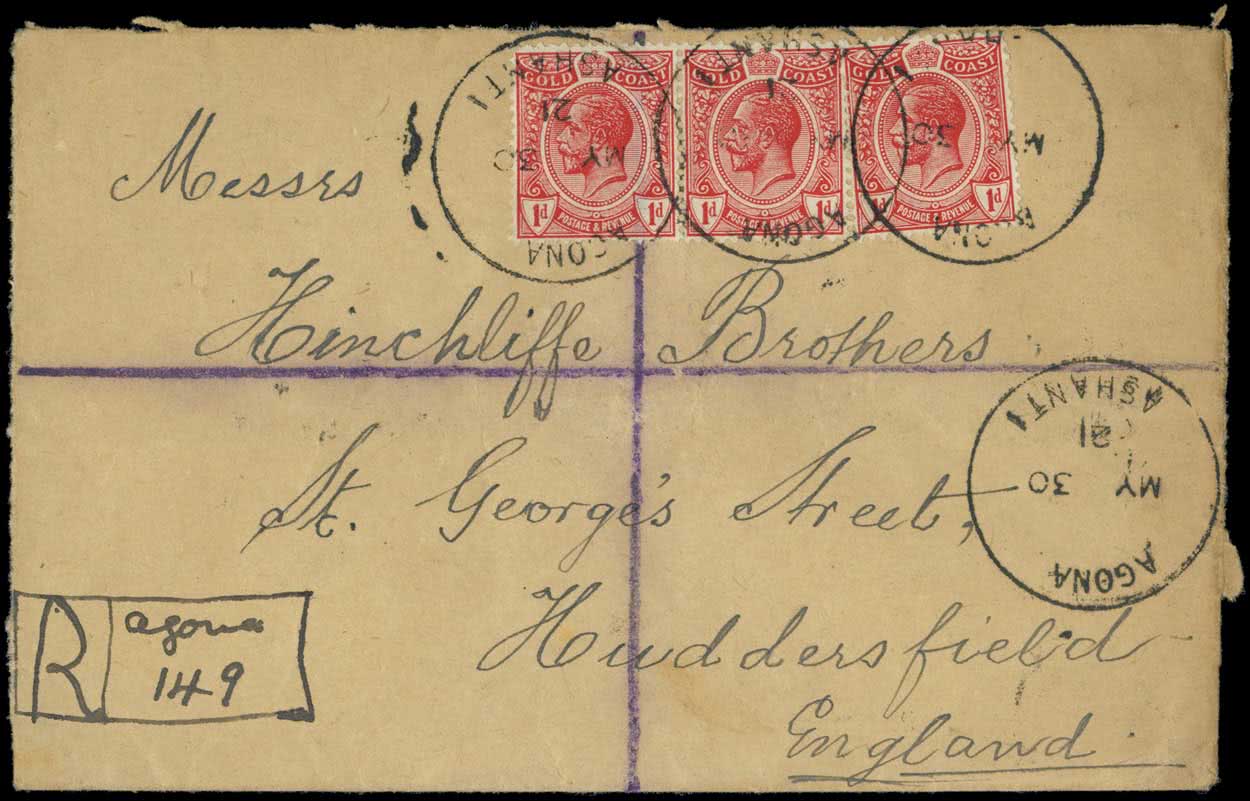 GOLD COAST GOLD COAST GOLD COAST
1d POSTAGE & REVENUE 1d 1d POSTAGE & REVENUE 1d 1d POSTAGE & REVENUE
AGONA
MY 30
21
ASHANTI
AGONA
ASHANTI
MY 30
Messrs
Hinchliffe Brothers
St. George's Street,
Huddersfield
England.
AGONA
MY 30
21
ASHANTI
R
agona
149